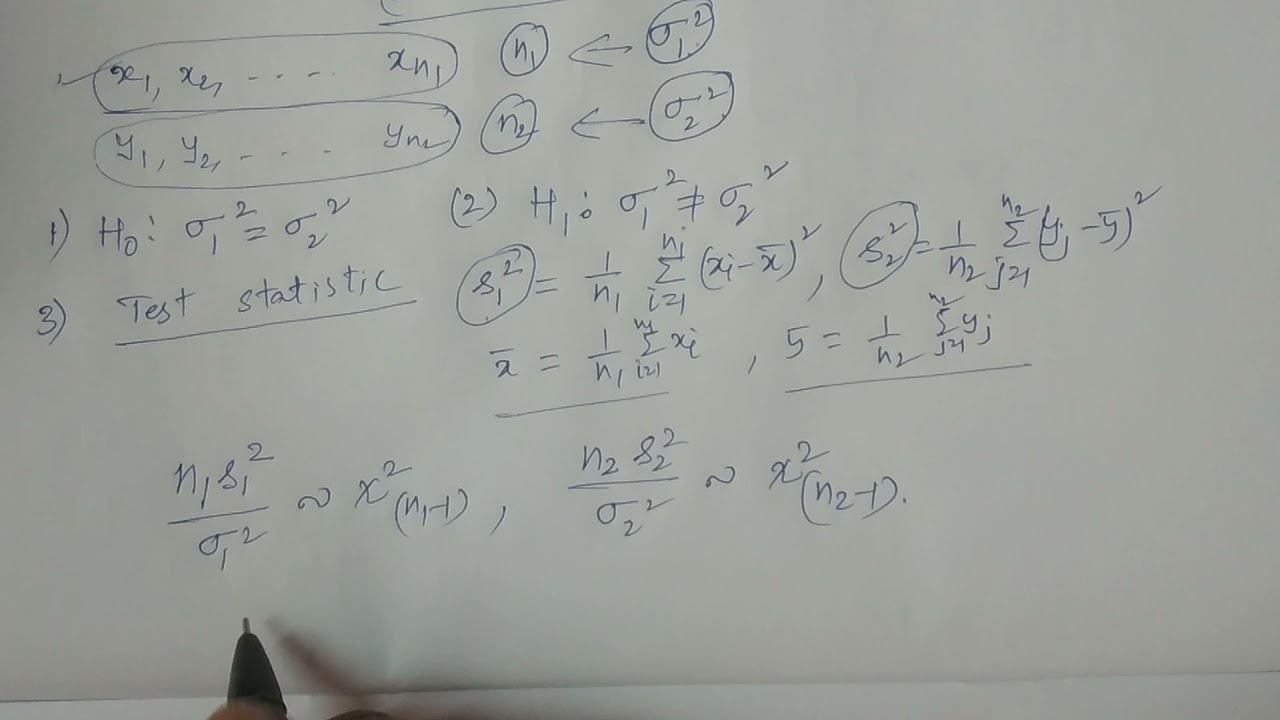 x₁, x₂, ---- xₙ₁ n₁ ← σ₁²
y₁, y₂, - - - yₙ₂ n₂ ← σ₂²
1) H₀: σ₁² = σ₂² (2) H₁: σ₁² ≠ σ₂²
3) Test statistic s₁² = 1/n₁ Σᵢ₌₁ⁿ¹ (xᵢ - x̄)², s₂² = 1/n₂ Σⱼ₌₁ⁿ² (yⱼ - ȳ)²
x̄ = 1/n₁ Σᵢ₌₁ⁿ¹ xᵢ , ȳ = 1/n₂ Σⱼ₌₁ⁿ² yⱼ
n₁s₁²/σ₁² ~ χ²(n₁-1), n₂s₂²/σ₂² ~ χ²(n₂-1).